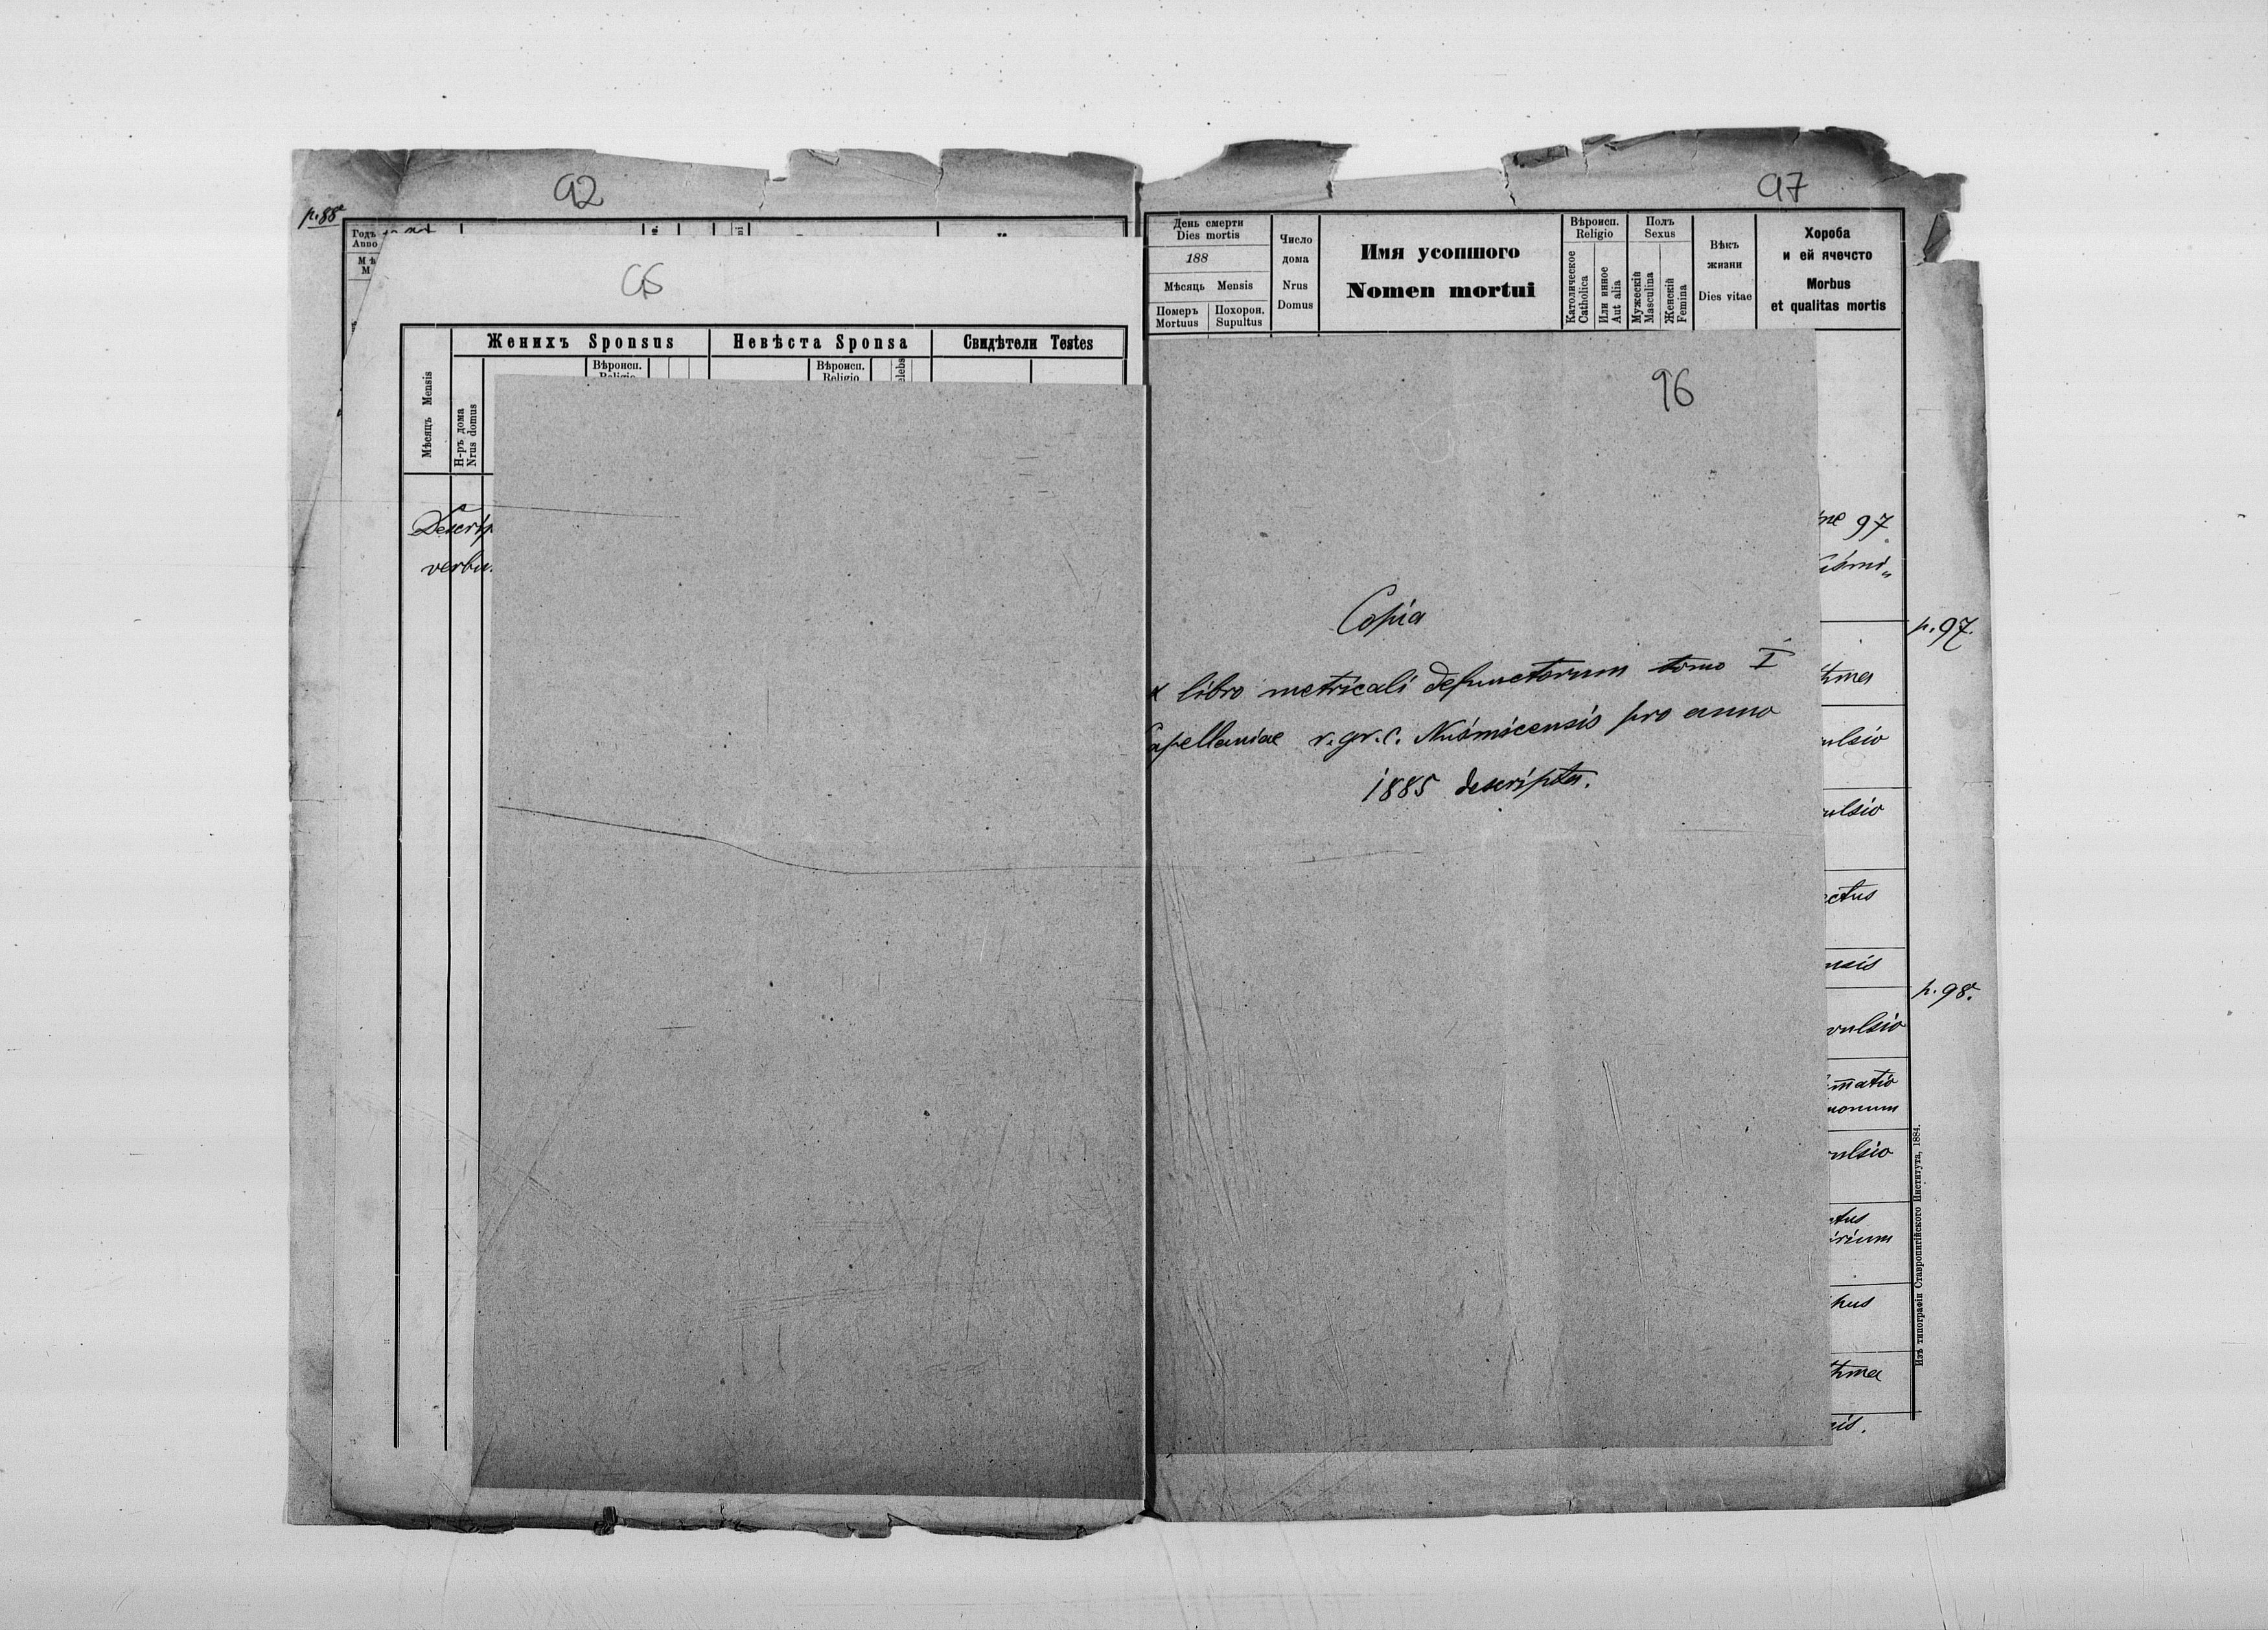 92
p. 88
Годъ
Anno
Мѣ
М
95
Женихъ Sponsus
Невѣста Sponsa
Свидѣтели Testes
Мѣсяцъ Mensis
Н-ръ дома
Nrus domus
Вѣроисп.
Religio
Вѣроисп.
Religio
elebs
Descrip
verbu
97
День смерти
Dies mortis
188
Мѣсяць Mensis
Померъ
Mortuus
Похорон.
Supultus
Число
дома
Nrus
Domus
Имя усопшого
Nomen mortui
Вѣроисп.
Religio
Католическое
Catholica
Или инное
Aut alia
Полъ
Sexus
Мужескій
Masculina
Женскій
Femina
Вѣкъ
жизни
Dies vitae
Хороба
и ей ячечсто
Morbus
et qualitas mortis
96
Copia
x libro metricali defunctorum tomo I
Capellaniae r. gr. c. Nuśmicensis pro anno
1885 descripta.
97
p. 97.
hma
ulsio
ulsio
ectus
nsis
p. 98.
vulsio
matio
monum
vulsio
atus
irium
hus
thma
nis.
Изъ типографіи Ставропигійского Института, 1884.